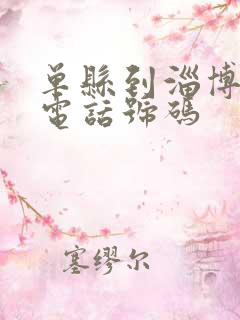 单縣到淄博
電話號碼
塞缪尔